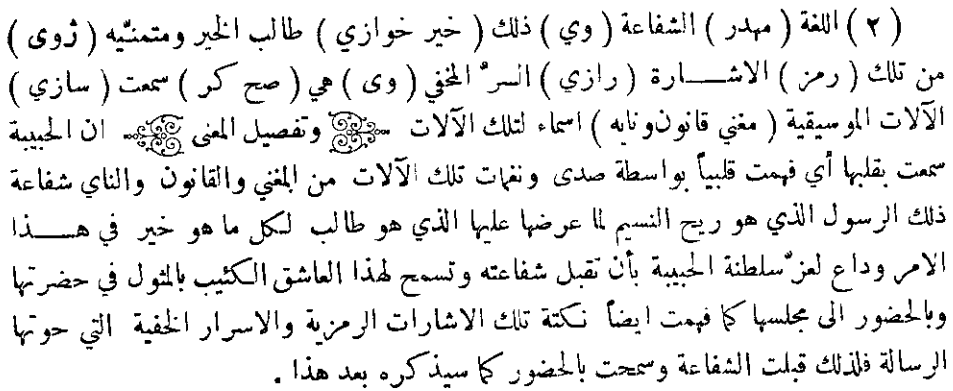 ( ٢ ) اللغة ( مهدر ) الشفاعة ( وي ) ذلك ( خير خوازي ) طالب الخير ومتمنيه ( ژوى )
من تلك ( رمز ) الاشــارة ( رازي ) السرّ المخفي ( وى ) هي ( صح كر ) سمعت ( سازي )
الآلات الموسيقية ( مغني قانون ونايه ) اسماء لتلك الآلات وتفصيل المعنى ان الحبيبة
سمعت بقلبها أي فهمت قلبياً بواسطة صدى ونغمات تلك الآلات من المغني والقانون والناي شفاعة
ذلك الرسول الذي هو ريح النسيم لما عرضها عليها الذي هو طالب لكل ما هو خير في هــذا
الامر وداع لعزّ سلطنة الحبيبة بأن تقبل شفاعته وتسمح لهذا العاشق الكئيب بالمثول في حضرتها
وبالحضور الى مجلسها كما فهمت ايضاً نكتة تلك الاشارات الرمزية والاسرار الخفية التي حوتها
الرسالة فلذلك قبلت الشفاعة وسمحت بالحضور كما سيذكره بعد هذا .